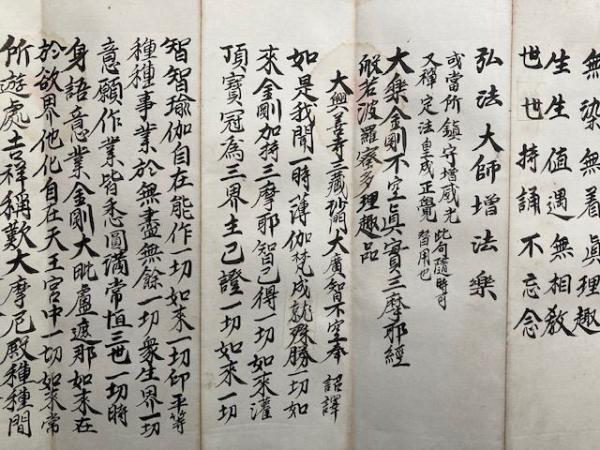 無染無着眞理趣
生生值遇無相教
世世持誦不忘念
弘法大師增法樂
或當所鎮守增威光 此句隨時可
又禪定法皇成正覺 替用也
大樂金剛不空眞實三摩耶經
般若波羅蜜多理趣品
大興善寺三藏沙門大廣智不空奉 詔譯
如是我聞一時薄伽梵成就殊勝一切如
來金剛加持三摩耶智已得一切如來灌
頂寶冠為三界主已證一切如來一切
智智瑜伽自在能作一切如來一切印平等
種種事業於無盡無餘一切衆生界一切
意願作業皆悉圓滿常恒三世一切時
身語意業金剛大毗盧遮那如來在
於欲界他化自在天王宮中一切如來常
所遊處吉祥稱歎大摩尼殿種種間